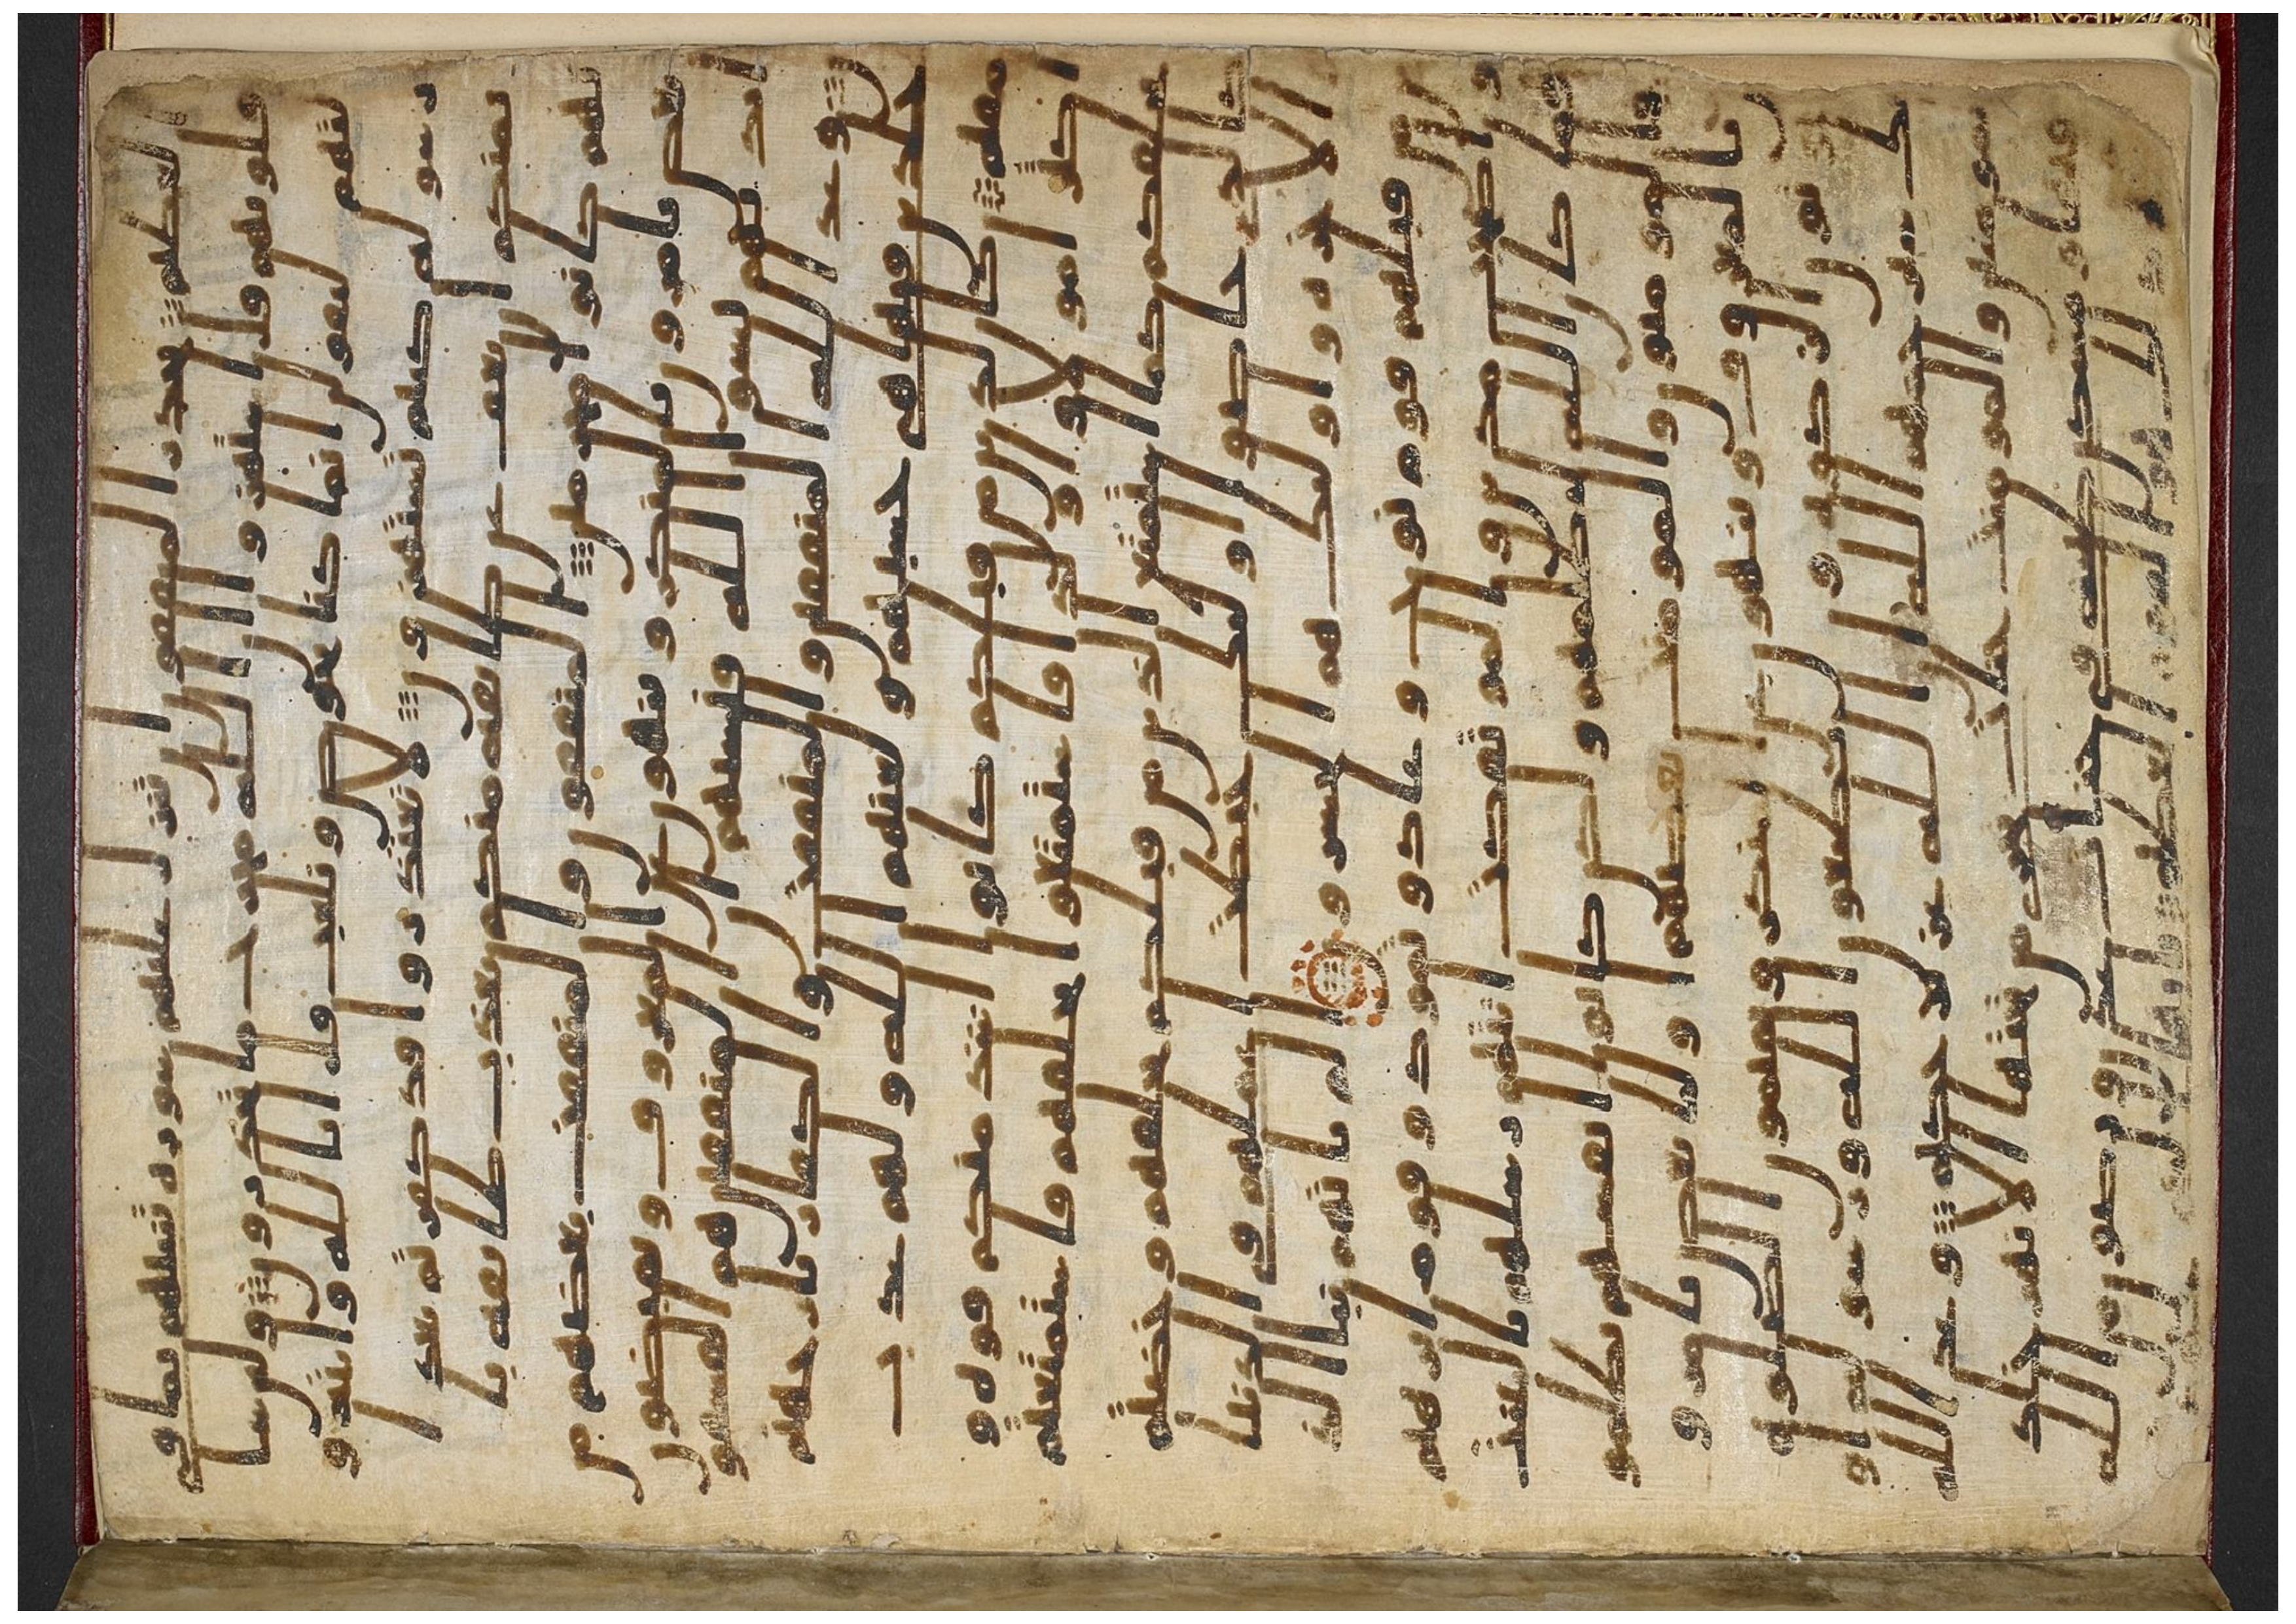 العظيم يحذر المنفقون ان تنزل عليهم سورة تنبئهم بما في
قلوبهم قل استهزوا ان الله مخرج ما تحذرون ولئن سا
لتهم ليقولن انما كنا نخوض ونلعب قل ابالله وايته و
رسوله كنتم تستهزون لا تعتذروا قد كفرتم بعد ا
يمنكم ان نعف عن طائفة منكم نعذب طائفة با
نهم كانوا مجرمين المنفقون والمنفقت بعضهم من
بعض يامرون بالمنكر وينهون عن المعروف ويقبضون
ايديهم نسوا الله فنسيهم ان المنفقين هم الفسقون
وعد الله المنفقين والمنفقت والكفار نار جهنم
خلدين فيها هي حسبهم ولعنهم الله ولهم عذاب
مقيم كالذين من قبلكم كانوا اشد منكم قوة و
اكثر امولا واولدا فاستمتعوا بخلقهم فاستمتعتم
بخلقكم كما استمتع الذين من قبلكم بخلقهم وخضتم
كالذي خاضوا اولئك حبطت اعملهم في الدنيا
والاخرة واولئك هم الخسرون الم ياتهم نبا الذ
ين من قبلهم قوم نوح وعاد وثمود وقوم ابرهيم
واصحب مدين والمؤتفكت اتتهم رسلهم بالبينت
فما كان الله ليظلمهم ولكن كانوا انفسهم يظلمو
ن والمؤمنون والمؤمنت بعضهم اوليا بعض يامرو
ن بالمعروف وينهون عن المنكر ويقيمون الصلوة و
يؤتون الزكوة ويطيعون الله ورسوله اولئك
سيرحمهم الله ان الله عزيز حكيم وعد الله
المؤمنين والمؤمنت جنت تجري من تحتها الانهر خلد
ين فيها ومسكن طيبة في جنت عدن ورضون من الله
اكبر ذلك هو الفوز العظيم يايها النبي